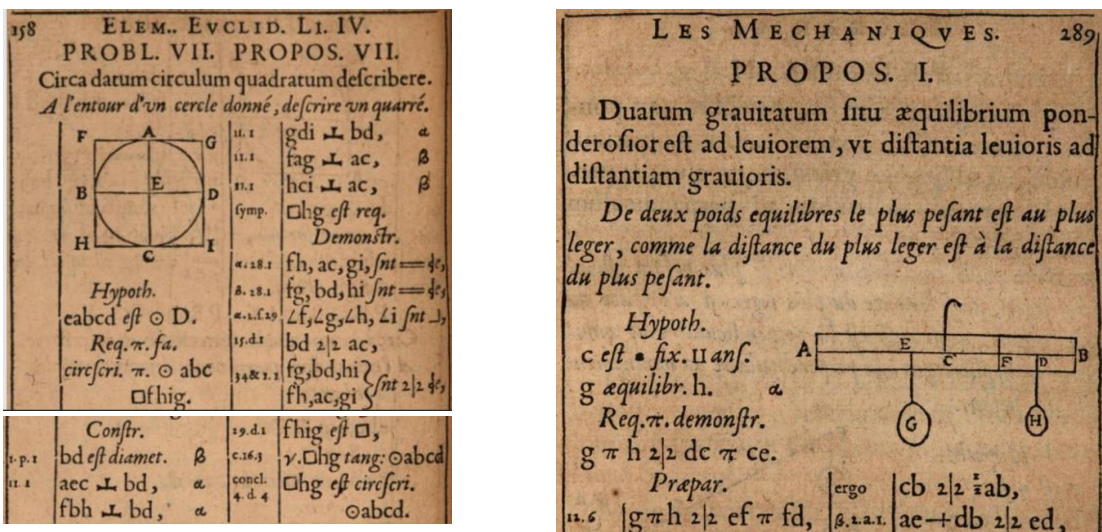 158 ELEM.. EVCLID. LI. IV.
PROBL. VII. PROPOS. VII.
Circa datum circulum quadratum deſcribere.
A l'entour d'vn cercle donné, deſcrire vn quarré.
F A G
B E D
H C I
Hypoth.
eabcd eſt ⊙ D.
Req. π. fa.
circſcri. π. ⊙ abc
□fhig.
11.1 gdi ⊥ bd, α
11.1 fag ⊥ ac, β
11.1 hci ⊥ ac, β
ſymp. □hg eſt req.
Demonſtr.
α. 28.1 fh, ac, gi, ſnt == ɖe,
β. 28.1 fg, bd, hi ſnt == ɖe,
α.2.ſ29 ∠f, ∠g, ∠h, ∠i ſnt ⅃,
15.d.1 bd 2|2 ac,
34&1.1 fg,bd,hi } ſnt 2|2 ɖe,
fh,ac,gi
Conſtr.
1.p.1 bd eſt diamet. β
11.1 aec ⊥ bd, α
fbh ⊥ bd, α
19.d.1 fhig eſt □,
c.16.3 γ. □hg tang: ⊙abcd
concl. 4.d.4 □hg eſt circſcri.
⊙abcd.
LES MECHANIQVES. 289
PROPOS. I.
Duarum grauitatum ſitu æquilibrium pon-
deroſior eſt ad leuiorem, vt diſtantia leuioris ad
diſtantiam grauioris.
De deux poids equilibres le plus peſant eſt au plus
leger, comme la diſtance du plus leger eſt à la diſtance
du plus peſant.
Hypoth.
c eſt • fix. ⊔ anſ.
g æquilibr. h. α
Req. π. demonſtr.
g π h 2|2 dc π ce.
Præpar.
12.6 gπh 2|2 ef π fd,
A E C F D B
G H
ergo cb 2|2 ½ab,
β.2.a.1. ae+db 2|2 ed,